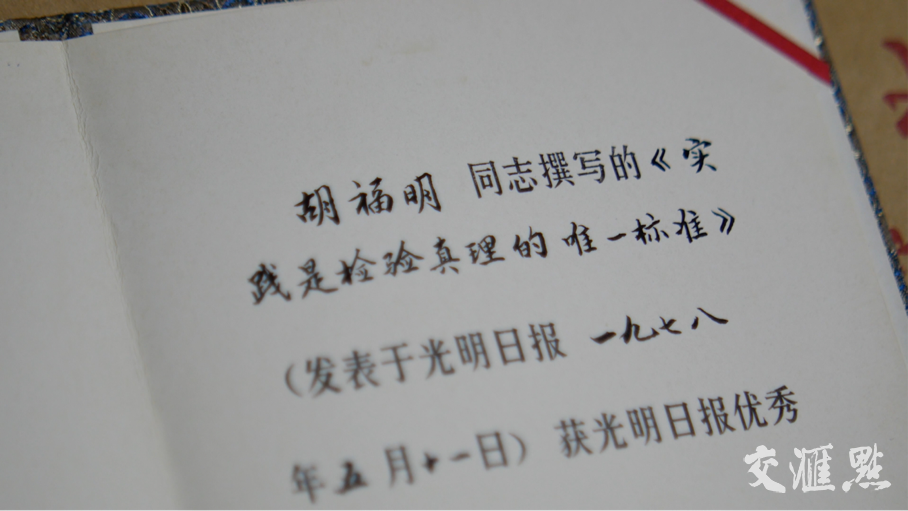 胡福明 同志撰写的《实
践是检验真理的唯一标准》
（发表于光明日报 一九七八
年五月十一日）获光明日报优秀
交汇點